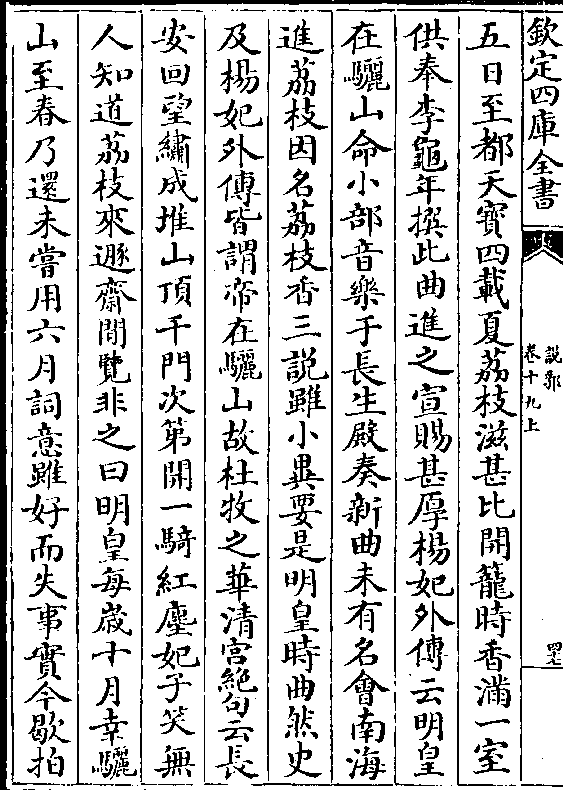 欽定四庫全書
説郛
卷十九上
四七
五日至都天寳四載夏荔枝滋甚比開籠時香滿一室
供奉李龜年撰此曲進之宣賜甚厚楊妃外傳云明皇
在驪山命小部音樂于長生殿奏新曲未有名會南海
進荔枝因名荔枝香三説雖小異要是明皇時曲然史
及楊妃外傳皆謂帝在驪山故杜牧之華清宫絶句云長
安回望繡成堆山頂千門次第開一騎紅塵妃子笑無
人知道荔枝來遯齋閒覽非之曰明皇每歳十月幸驪
山至春乃還未嘗用六月詞意雖好而失事實今歇拍